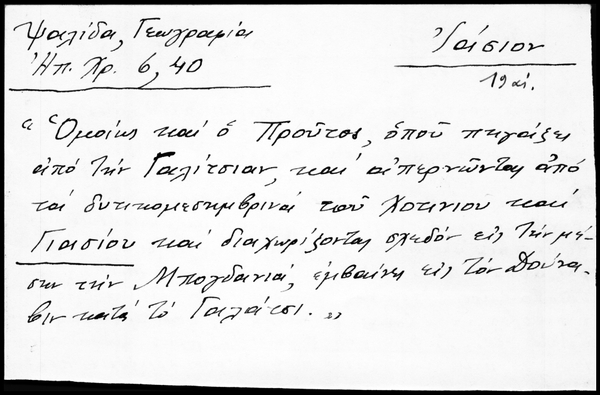 Ψαλίδα, Γεωγραφία
Ἠπ. Χρ. 6, 40
Ἰάσιον
19 αἰ.
"Ὁμοίως καί ὁ Προῦτος, ὁποῦ πηγάζει
ἀπό τήν Γαλίτσιαν, καί ἀπερνῶντας ἀπό
τά δυτικομεσημβρινά τοῦ Χοτινιου καί
Γιασίου καί διαχωρίζοντας σχεδόν εἰς τήν μέ-
σην τήν Μπογδανιά, ἐμβαίνει εἰς τόν Δούνα-
βιν κατά τό Γαλάτσι."